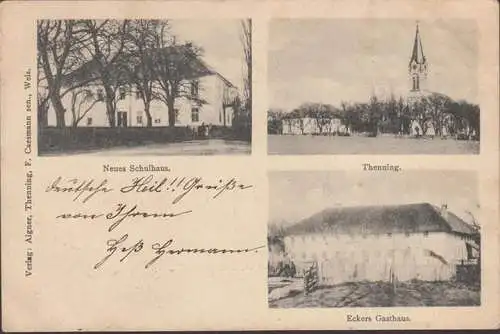 Neues Schulhaus.
Thenning.
deutsche Heil!! Grüße
von Ihrem
Heß Hermann.
Eckers Gasthaus.
Verlag: Aigner, Thenning, F. Cassmann sen., Wels.